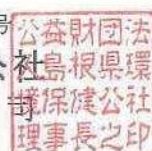 号
公社
公益財団法
人島根県環
境保健公社
理事長之印